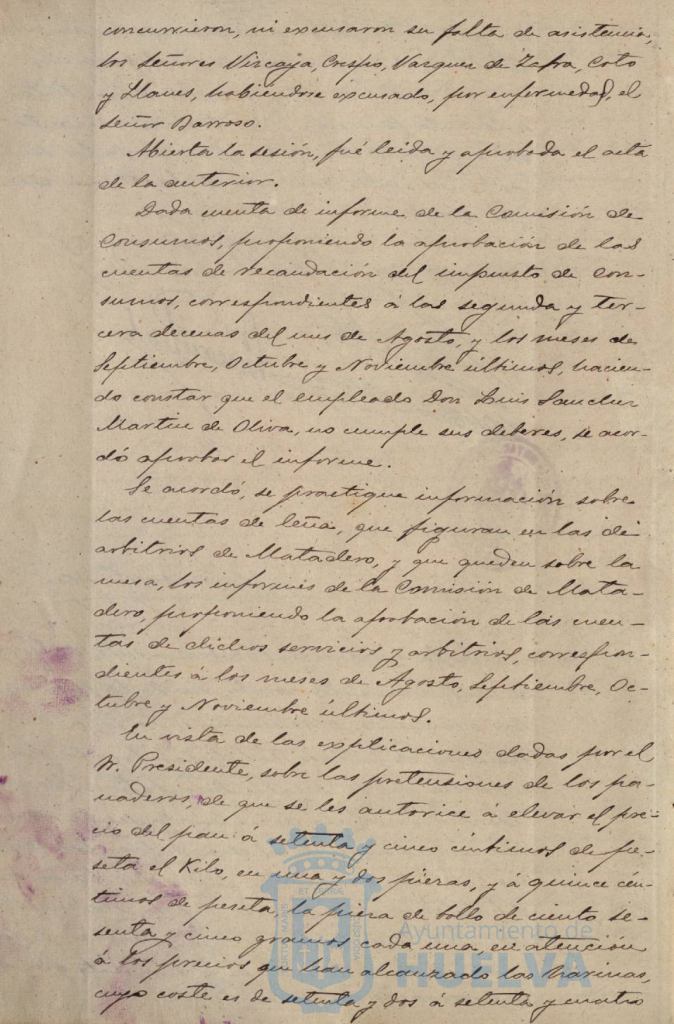 concurrieron, ni excusaron su falta de asistencia,
los Señores Vizcaya, Crespo, Vazquez de Zafra, Coto
y Llanes, habiéndose excusado, por enfermedad, el
señor Barroso.
Abierta la sesión, fué leida y aprobada el acta
de la anterior.
Dada cuenta de informe de la Comisión de
Consumos, proponiendo la aprobación de las
cuentas de recaudación del impuesto de Con-
sumos, correspondientes á las segunda y ter-
cera decenas del mes de Agosto, y los meses de
Septiembre, Octubre y Noviembre últimos, hacien-
do constar que el empleado Don Luis Sanchez
Martin de Oliva, no cumple sus deberes, se acor-
dó aprobar el informe.
Se acordó, se practique información sobre
las cuentas de leña, que figuran en las de
arbitrios de Matadero, y que queden sobre la
mesa, los informes de la Comisión de Mata-
dero, proponiendo la aprobación de las cuen-
tas de dichos servicios y arbitrios, correspon-
dientes á los meses de Agosto, Septiembre, Oc-
tubre y Noviembre últimos.
En vista de las explicaciones dadas por el
Sr. Presidente, sobre las pretensiones de los pa-
naderos, de que se les autorice á elevar el pre-
cio del pan á setenta y cinco céntimos de pe-
seta el Kilo, en una y dos piezas, y á quince cén-
timos de peseta, la pieza de bollo de ciento se-
senta y cinco gramos cada una, en atención
á los precios que han alcanzado las harinas,
cuyo coste es de setenta y dos á setenta y cuatro
Ayuntamiento de
HUELVA